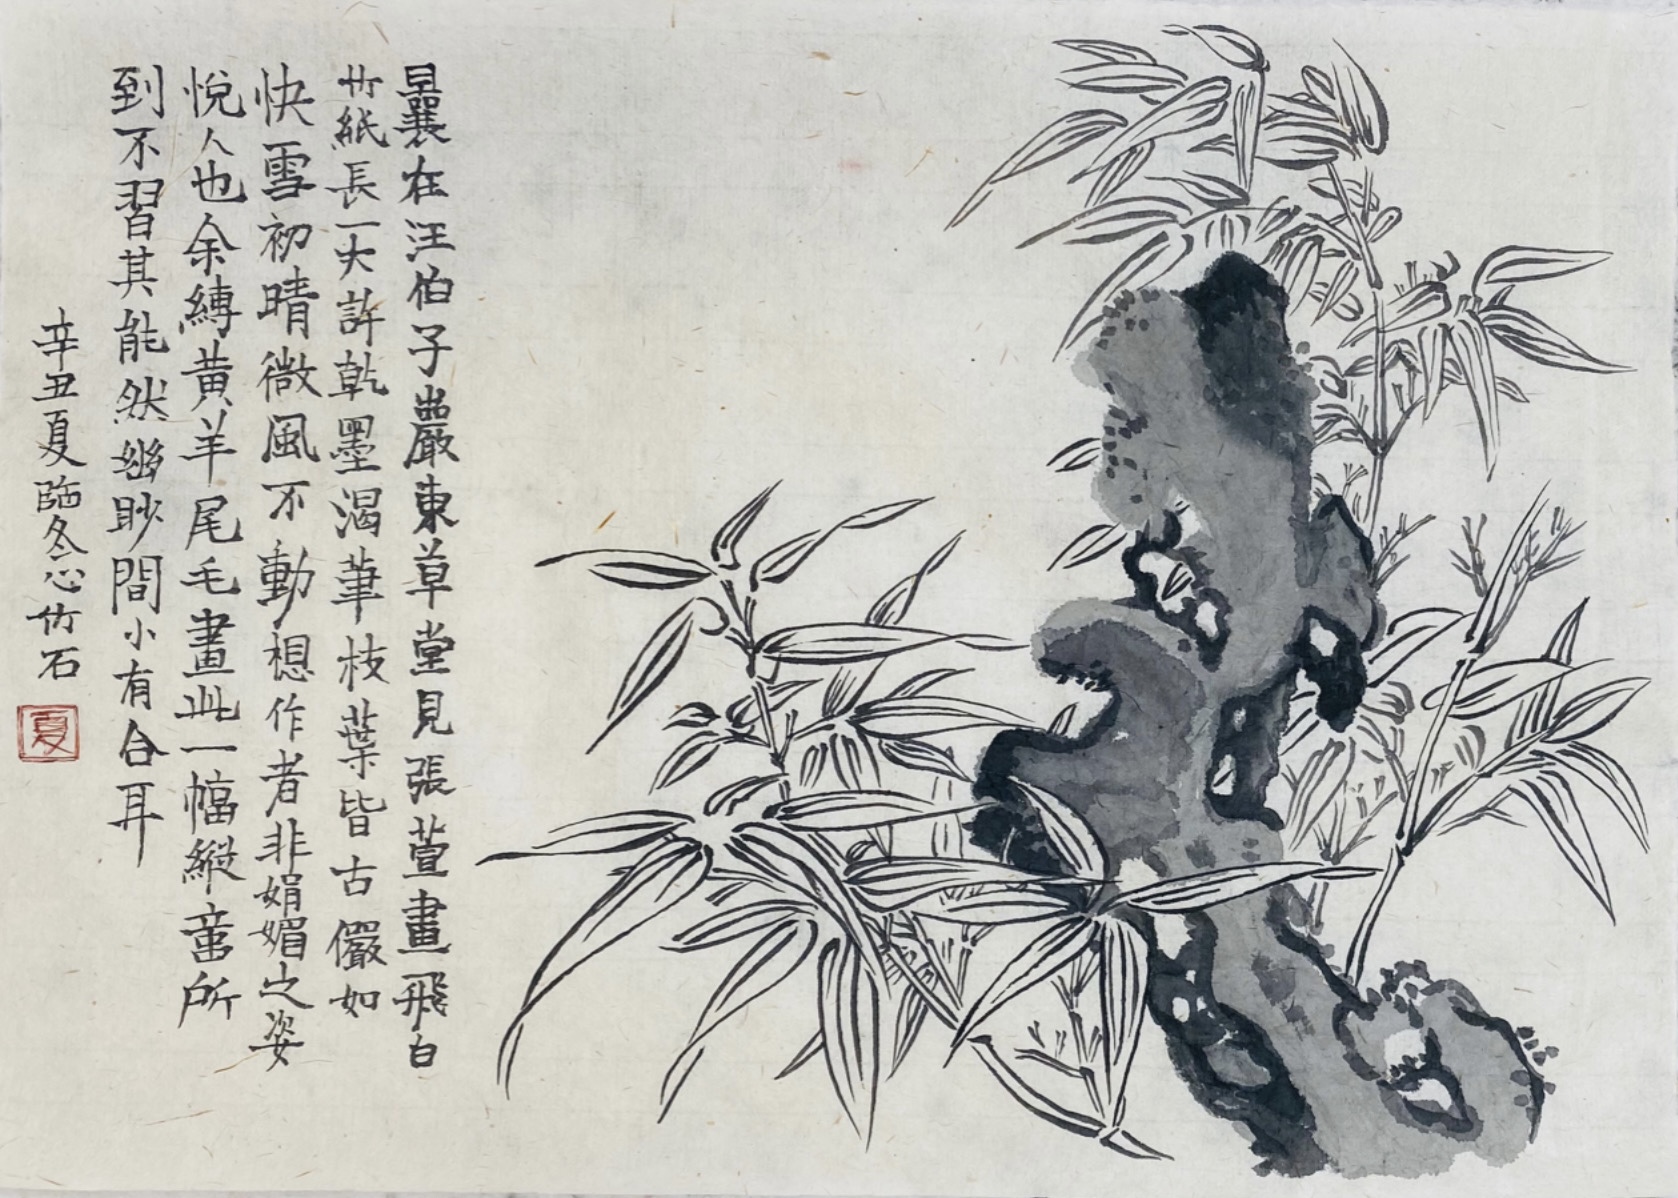 曩在汪伯子巖東草堂見張萱畫飛白
竹紙長一大許乾墨渴筆枝葉皆古儼如
快雪初晴微風不動想作者非娟媚之姿
悅人也余縛黃羊尾毛畫此一幅縱童所
到不習其能然幽眇間小有合耳
辛丑夏臨冬心竹石
夏